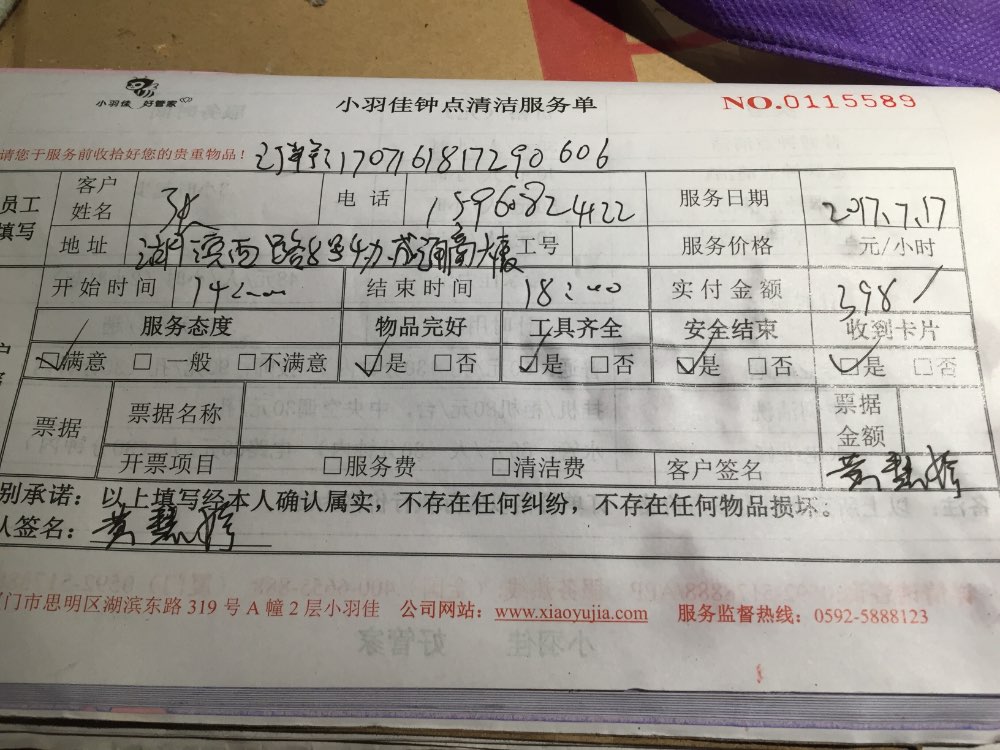 小羽佳 好管家
小羽佳钟点清洁服务单
NO.0115589
请您于服务前收拾好您的贵重物品!
1707161817290606
员工
填写
客户
姓名
电话
1596082422
服务日期
2017.7.17
地址
湖滨西路
工号
服务价格
元/小时
开始时间
14:00
结束时间
18:00
实付金额
398/
服务态度
物品完好
工具齐全
安全结束
收到卡片
☑满意 □一般 □不满意
☑是 □否
☑是 □否
☑是 □否
☑是 □否
票据
票据名称
票据
金额
开票项目
□服务费 □清洁费
客户签名
黄慧婷
别承诺：以上填写经本人确认属实，不存在任何纠纷，不存在任何物品损坏。
人签名：黄慧婷
门市思明区湖滨东路 319 号 A 幢 2 层小羽佳 公司网站：www.xiaoyujia.com 服务监督热线：0592-5888123
小羽佳 好管家